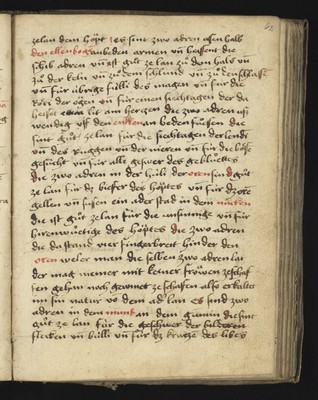 62
zelan dem höpt es sint zwo adren osenhalb
den ellenbog anbeden armen vn̄ heissent die
vn̄ ist gůt ze lan zů dem hals vn̄
zů der kelin vn̄ zů dem schlund vn̄ zů
vn̄ für übrige fülli des magen vn̄ für die
röti der ogen vn̄ für einen siechtagen der da
heiset lit am hertzen die zwo adren
wendig vff den an beden füssen die
sint gůt ze lan für die siechtagen der lendi
vn̄ des ruggen vn̄ der nieren vn̄ für die böse
gesücht vn̄ für alle geswer des geblůttes
die zwo adren in der hüli der oren sind gůt
ze lan für dz des höptes vn̄ für
gellen vn̄ susen ein ader stad in dem nacken
die ist gůt ze lan für die unsinnige vn̄ für
hirenwůttige des höptes die zwo adren
die da stand vier fingerbreit hinder den
oren weler man die selben zwo adren lat
der mag niemer mit keiner fröwen ze schaf
fen gehan noch gewinet ze schaffen also erkaltet
im sin natur vō dem ad lan es sind zwo
adren in dem mund an dem gůmin die sint
gůt ze lan für die geschwer der
flecken vn̄ vn̄ für dz kratzē des libes